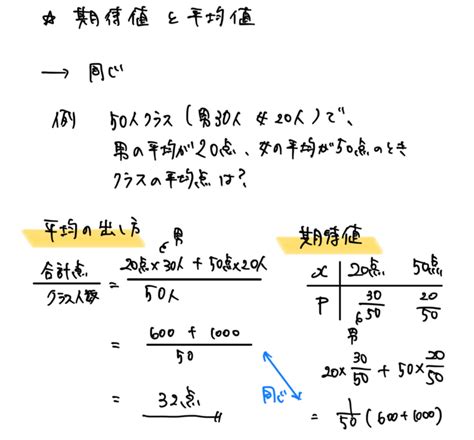 ☆ 期待値 と 平均値
→ 同じ
例 50人クラス (男30人 女20人) で、
男の平均が20点、女の平均が50点のとき
クラスの平均点は?
平均の出し方
男
合計点/クラス人数 = 20点×30人 + 50点×20人/50人
= 600 + 1000/50
= 32点
同じ
期待値
x 20点 50点
P 30/50 20/50
男
20×30/50 + 50×20/50
= 1/50 (600+1000)